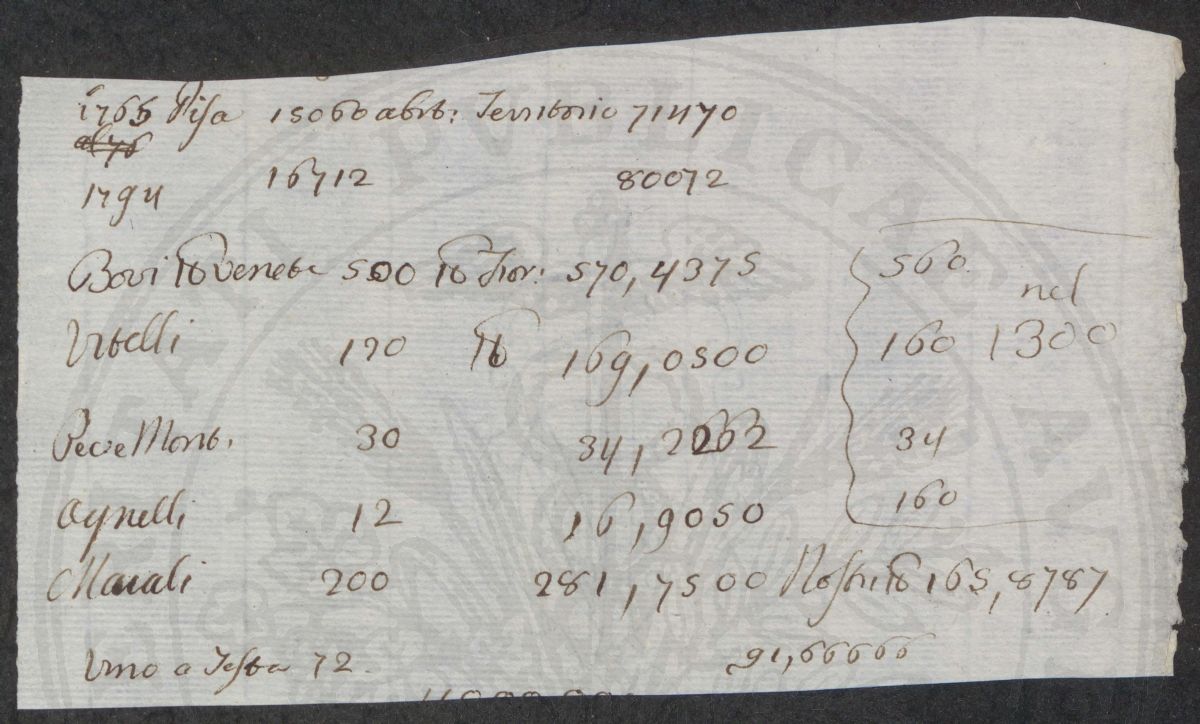 1765 Pisa 15060 abit: Territorio 71470
al 76
1794 16712 80072
Bovi ℔ venete 500 ℔ Fior: 570,4375 560
nel
Vitelli 170 ℔ 169,0500 160 1300
Pec e Mont. 30 34,2262 34
Agnelli 12 16,9050 160
Maiali 200 281,7500 Nostri ℔ 165,8787
Vino a Testa 72. 91,66666